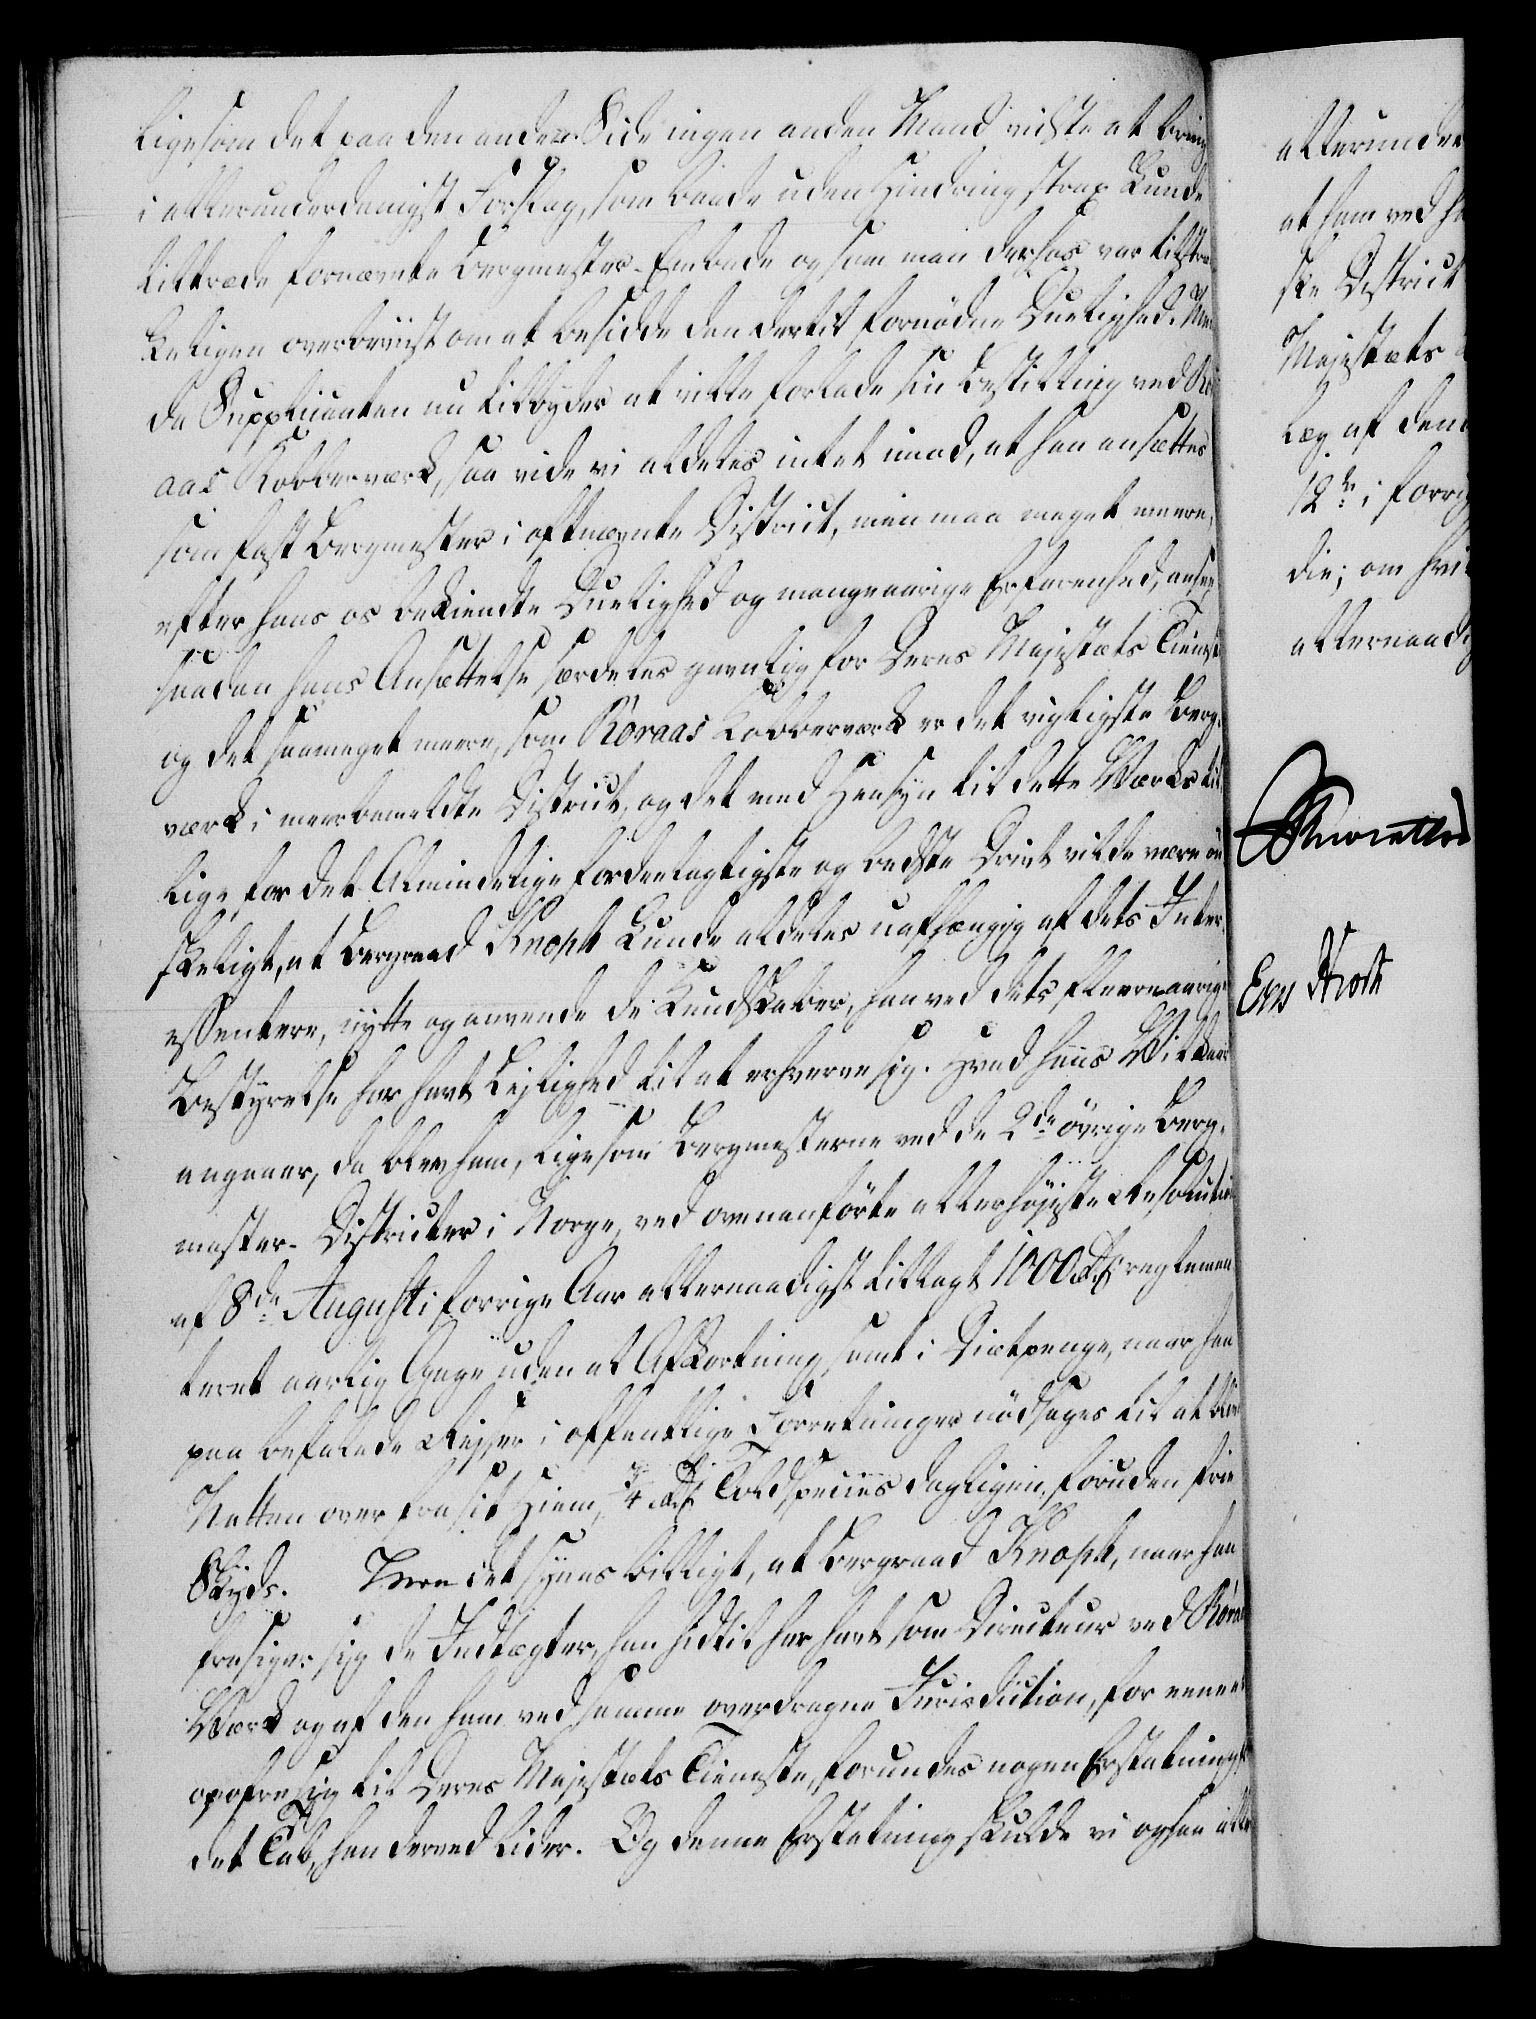 ligesom det paa den anden Side ingen anden Mand vidste at bring
i allerunderdanigst Forslag, som baade uden Hindring strax kunde
tiltræde fornævnte Bergmester-Embede og som man derhos var tilstræk
keligen overbeviist om at besidde den dertil fornødne Duelighed. Men
da Supplicanten nu tilbyder at ville forlade sin Bestilling ved Rør
aas Kobberværk, saa vide vi aldeles intet imod, at han ansættes
som fast Bergmester i oftnævnte District, men maa meget meere,
efter hans os bekiendte Duelighed og mangeaarige Erfarenhed, ansee
saadan hans Ansættelse særdeles gavnlig for Deres Majestæts Tieneste
og det saameget meere, som Röraas Kobberværk er det vigtigste Berg-
værk i meerbemeldte District, og det med Hensyn til dette Værks til
lige for det Almindelige fordeelagtigste og bedste Drivt vilde være øn
skeligt, at Bergraad Knoph kunde aldeles uafhængig af dets Inter
essentere, nytte og anvende de Kundskaber, han ved dets fleeraarige
Bestyrelse har havt Lejlighed til at erhverve sig. Hvad hans Vilkaar
angaaer, da blev ham, ligesom Bergmesterne ved de 2de övrige Berg-
mester-Districter i Norge, ved ovenanförte allerhöjeste Resolution
af 8de Augusti forrige Aar allernaadigst tillagt 1000 Rdr reglemen
teret aarlig Gage uden at Afkortning samt i Diætpenge, naar han
paa befalede Rejser i offentlige Forretninger nödsages til at blive
Natten over fra sit Hiem, 3/4 Rdr Told species dagligen, foruden frie
Skyds. Men det synes billigt, at Bergraad Knoph, naar han
frasiger sig de Indtægter, han hidtil har havt som Directeur ved Röraas
Værk og af den ham ved samme overdragne Jurisdiction, for eene at
opofre sig til Deres Majestæts Tieneste, forundes nogen Erstatning for
det Tab, han derved lider. Og denne Erstatning skulde vi ogsaa alle
allerunder
at ham ved
ske District
Majestæts
læg af den
12te i forrig
die; om hvi
allernaadig